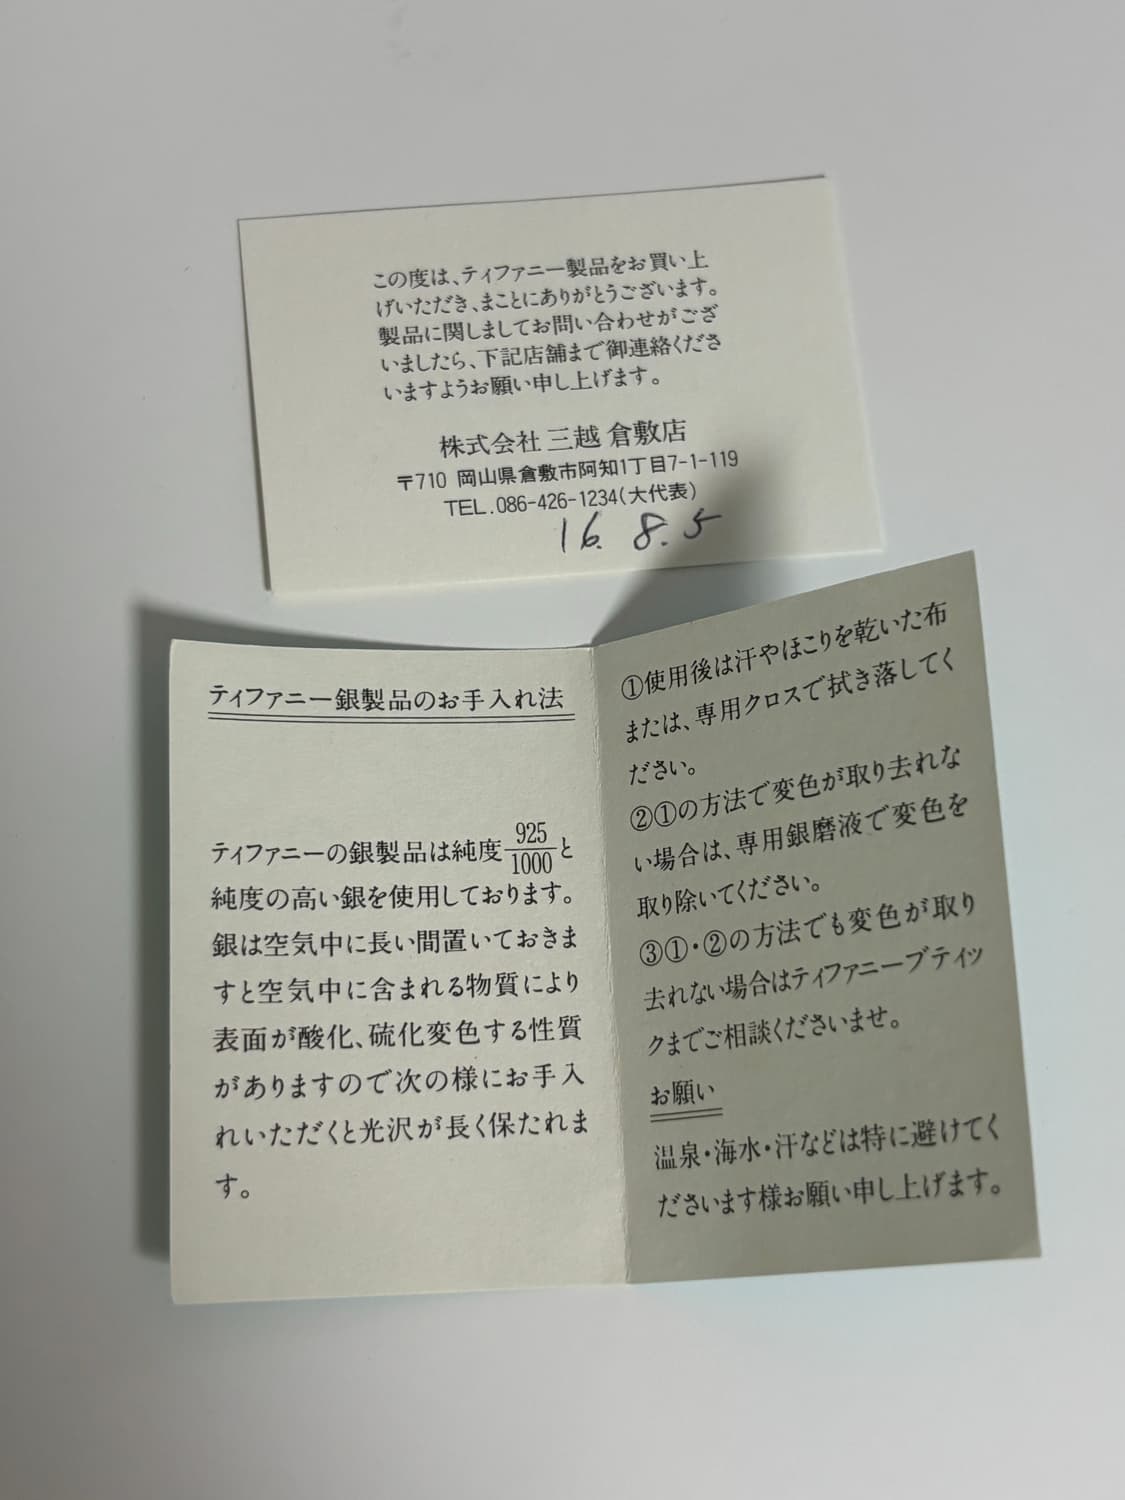 この度は、ティファニー製品をお買い上
げいただき、まことにありがとうございます。
製品に関しましてお問い合わせがござ
いましたら、下記店舗まで御連絡くださ
いますようお願い申し上げます。
株式会社 三越 倉敷店
〒710 岡山県倉敷市阿知1丁目7-1-119
TEL.086-426-1234(大代表)
16. 8. 5
ティファニー銀製品のお手入れ法
ティファニーの銀製品は純度925/1000と
純度の高い銀を使用しております。
銀は空気中に長い間置いておきま
すと空気中に含まれる物質により
表面が酸化、硫化変色する性質
がありますので次の様にお手入
れいただくと光沢が長く保たれま
す。
①使用後は汗やほこりを乾いた布
または、専用クロスで拭き落してく
ださい。
②①の方法で変色が取り去れな
い場合は、専用銀磨液で変色を
取り除いてください。
③①・②の方法でも変色が取り
去れない場合はティファニーブティッ
クまでご相談くださいませ。
お願い
温泉・海水・汗などは特に避けてく
ださいます様お願い申し上げます。